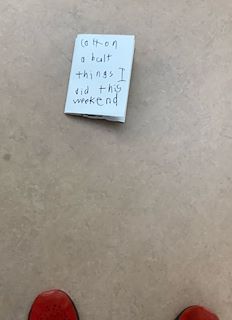 cotton
a balt
things I
did this
weekend